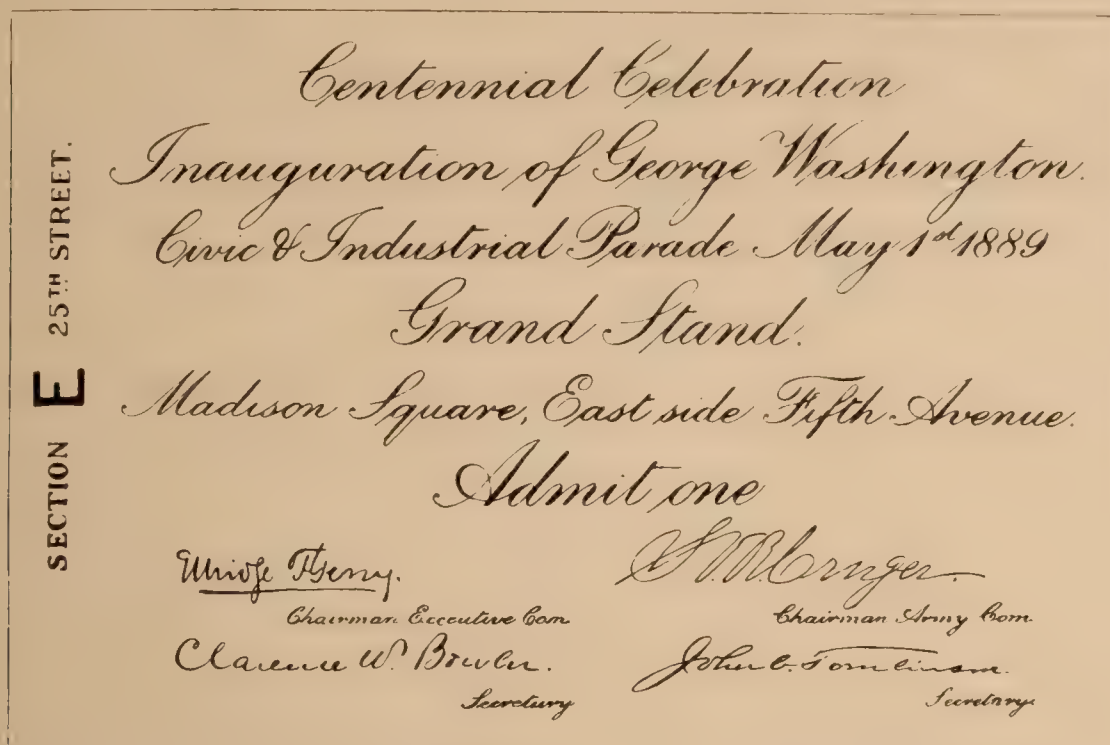 SECTION E 25TH STREET.
Centennial Celebration
Inauguration of George Washington.
Civic & Industrial Parade May 1st 1889
Grand Stand.
Madison Square, East side Fifth Avenue.
Admit one
Elbridge T. Gerry.
Chairman Executive Com
Clarence W. Bowen.
Secretary
S.V.R. Cruger.
Chairman Army Com.
John C. Tomlinson.
Secretary.